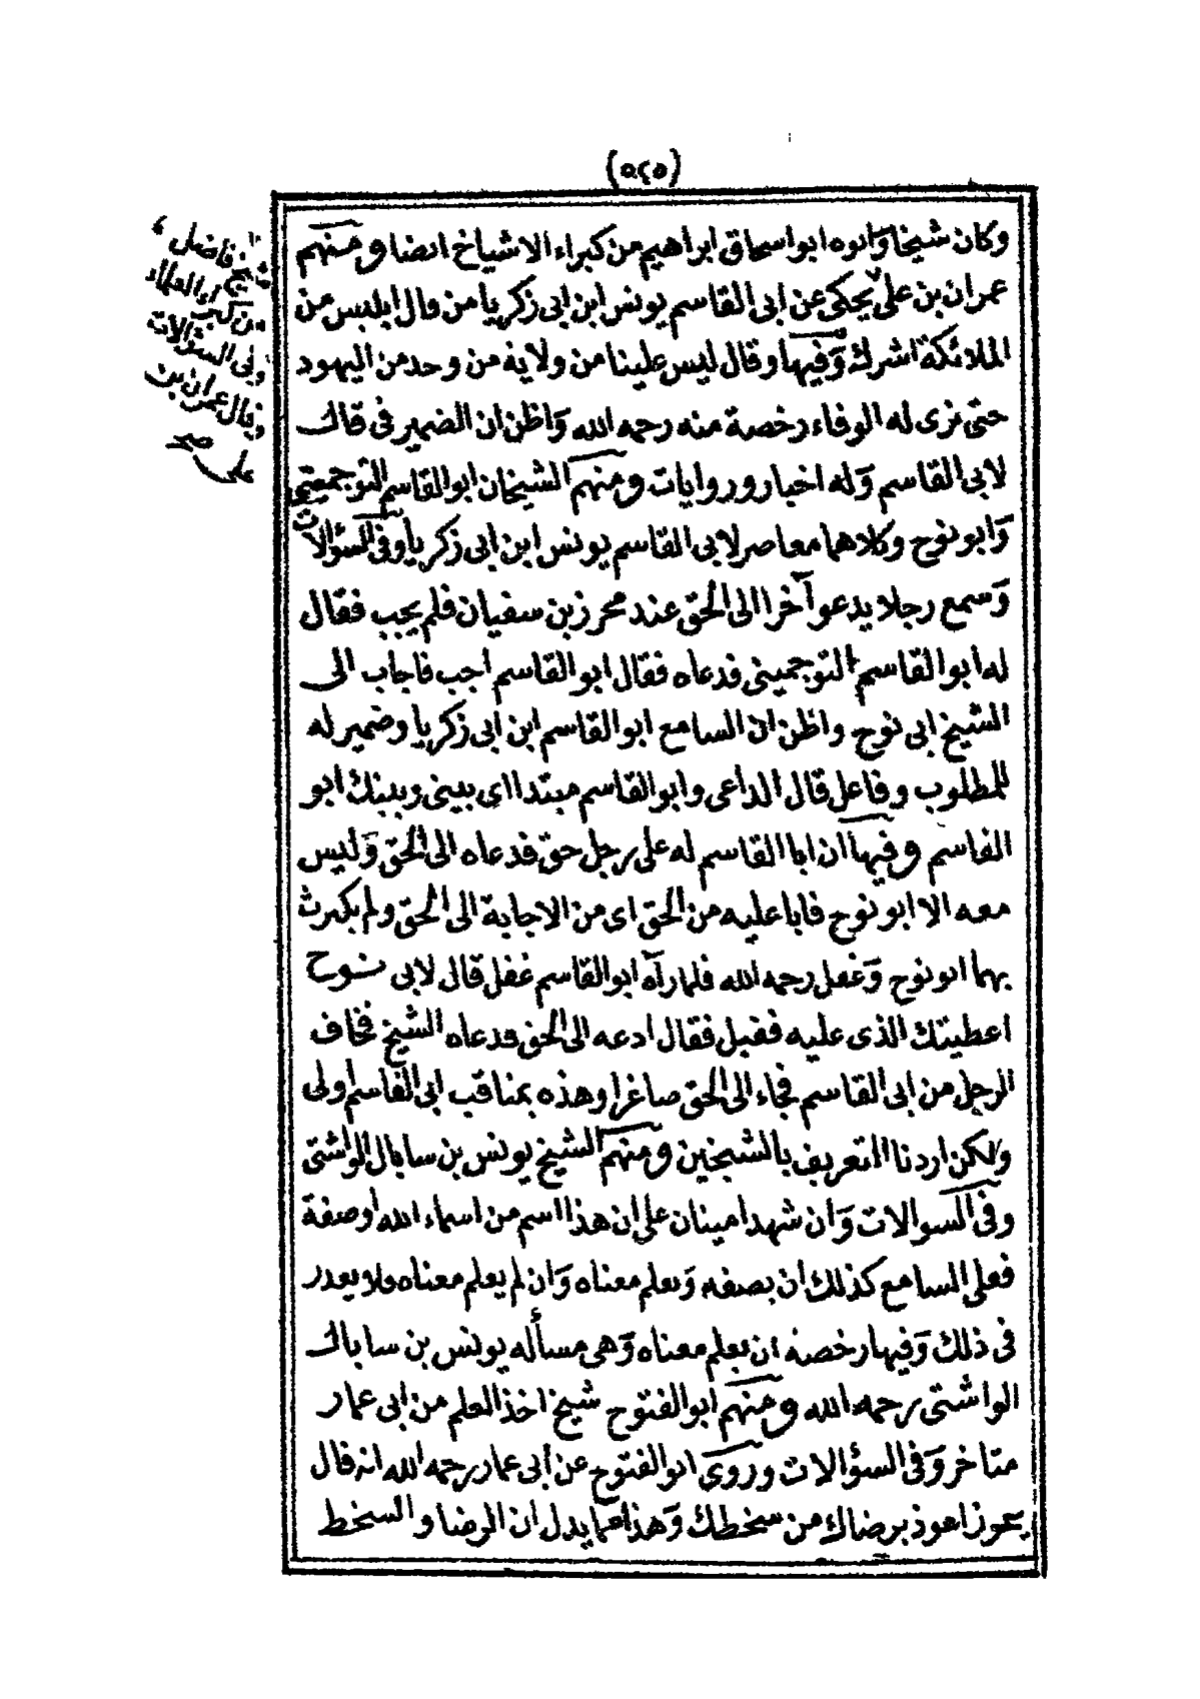 (٥٢٥)
وكان شيخا وابوه ابو اسحاق ابراهيم من كبراء الاشياخ ايضا ومنهم
عمران بن علي يحكى عن ابى القاسم يونس ابن ابى زكريا من قال ابليس من
الملائكة اشرك وفيها وقال ليس علينا من ولاية من وحد من اليهود
حتى نرى له الوفاء رخصة منه رحمه الله واظن ان الضمير فى قال
لابى القاسم وله اخبار وروايات ومنهم الشيخان ابو القاسم التوجمينى
وابو نوح وكلاهما معاصر لابى القاسم يونس ابن ابى زكريا وفى السؤالات
وسمع رجلا يدعو آخر الى الحق عند محرز بن سفيان فلم يجب فقال
له ابو القاسم التوجمينى فدعاه فقال ابو القاسم اجب فاجاب الى
الشيخ ابى نوح واظن ان السامع ابو القاسم ابن ابى زكريا وضمير له
للمطلوب وفاعل قال الداعى وابو القاسم مبتدا اى بينى وبينك ابو
القاسم وفيها ان ابا القاسم له على رجل حق فدعاه الى الحق وليس
معه الا ابو نوح فابا عليه من الحق اى من الاجابة الى الحق ولم يكرث
بهما ابو نوح وغفل رحمه الله فلما رآه ابو القاسم غفل قال لابى نوح
اعطيتك الذى عليه فقبل فقال ادعه الى الحق فدعاه الشيخ فخاف
الرجل من ابى القاسم فجاء الى الحق صاغرا وهذه بمناقب ابى القاسم اولى
ولكن اردنا التعريف بالشيخين ومنهم الشيخ يونس بن سابال الواشتى
وفى السوالات وان شهد امينان على ان هذا اسم من اسماء الله او صفة
فعلى السامع كذلك ان يصفه ويعلم معناه وان لم يعلم معناه فلا يعدر
فى ذلك وفيها رخصة ان يعلم معناه وهى مسأله يونس بن سابال
الواشتى رحمه الله ومنهم ابو الفتوح شيخ اخذ العلم من ابى عمار
متاخر وفى السؤالات وروى ابو الفتوح عن أبى عمار رحمه الله انه قال
يجوز اعوذ برضاك من سخطك وهذا مما يدل ان الرضا والسخط
شيخ فاضل
من كبراء العلماء
وفى السؤالات
وقال عمران بن
على صح